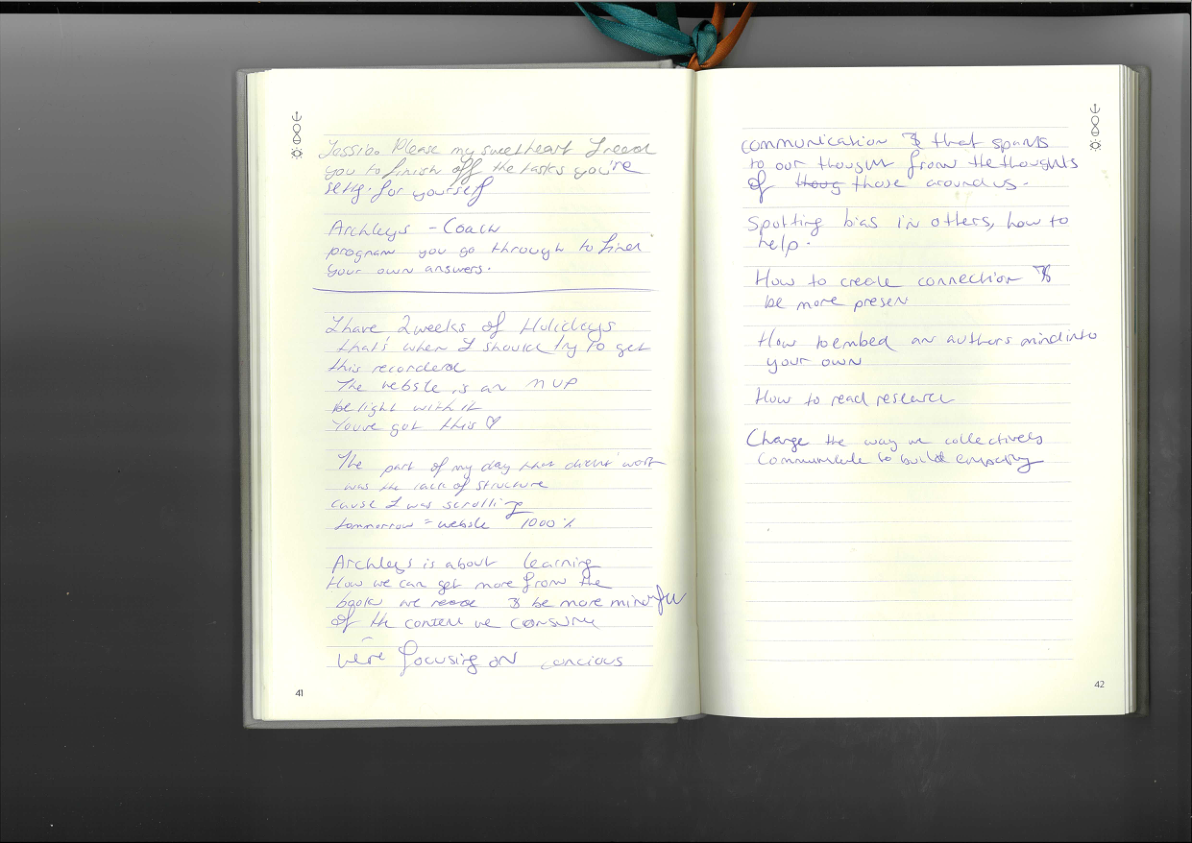 Please my sweetheart I need
you to finish off the tasks you're
for yourself
Archleys - Coach
program you go through to find
your own answers.
I have 2 weeks of Holideys
that's when I should try to get
this recorded
The webste is an MVP
be light with it
You've got this ♡
The part of my day that didn't work
was the lack of structure
cause I was scrolling
tommorrow = webste 1000%
Archleys is about learning
How we can get more from the
books we read & be more mindful
of the content we consume
We're focusing on concious
41
communication & that spants
to our thought from the thoughts
of thoug those around us.
Spotting bias in others, how to
help.
How to create connection &
be more presen
How to embed an authors mind into
your own
How to read research
Change the way we collectively
Communicate to build empathy
42